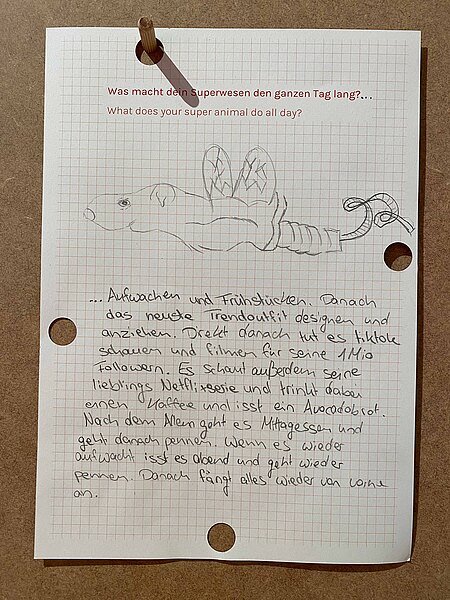 Was macht dein Superwesen den ganzen Tag lang?...
What does your super animal do all day?
... Aufwachen und Frühstücken. Danach
das neuste Trendoutfit designen und
anziehen. Direkt danach tut es tiktok
schauen und filmen für seine 1 Mio
Followern. Es schaut außerdem seine
lieblings Netflixserie und trinkt dabei
einen Kaffee und isst ein Avocadobrot.
Nach dem Allem geht es Mittagessen und
geht danach pennen. Wenn es wieder
aufwacht isst es abend und geht wieder
pennen. Danach fängt alles wieder von vorne
an.